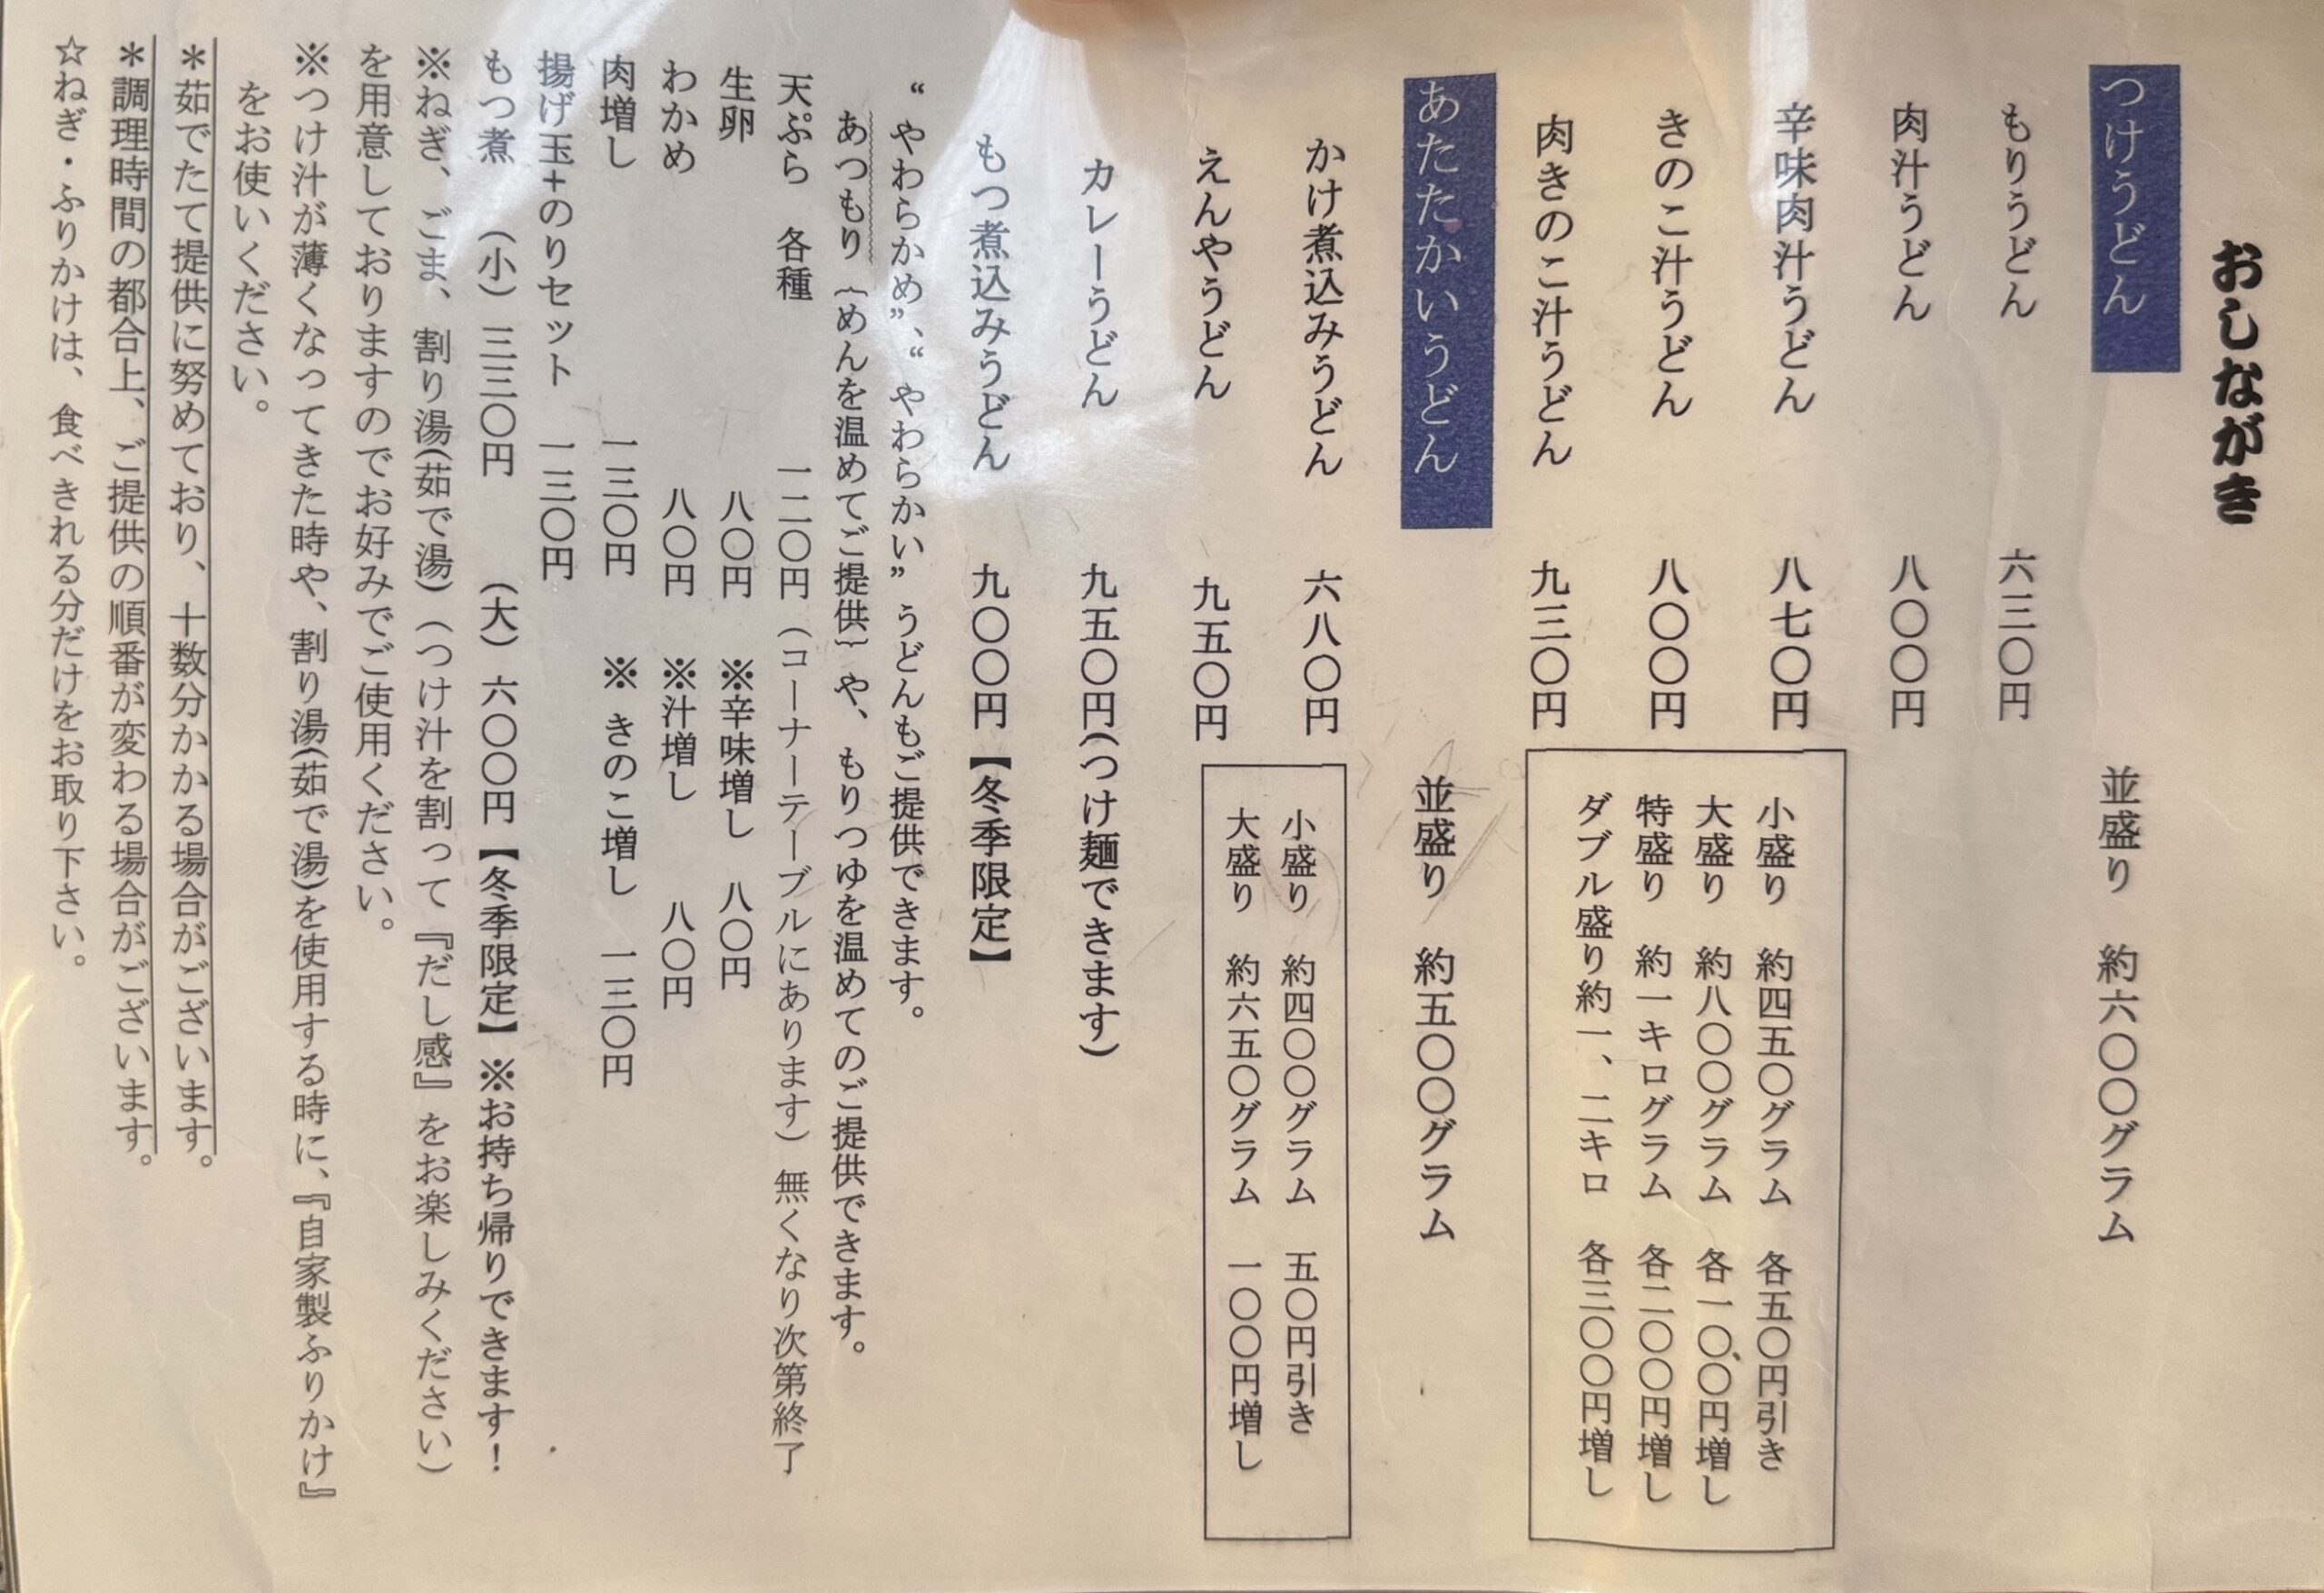 おしながき
つけうどん　並盛り　約六〇〇グラム
もりうどん　六三〇円
肉汁うどん　八〇〇円
辛味肉汁うどん　八七〇円
きのこ汁うどん　八〇〇円
肉きのこ汁うどん　九三〇円
小盛り　約四五〇グラム　各五〇円引き
大盛り　約八〇〇グラム　各一〇〇円増し
特盛り　約一キログラム　各二〇〇円増し
ダブル盛り約一、二キロ　各三〇〇円増し
あたたかいうどん　並盛り　約五〇〇グラム
かけ煮込みうどん　六八〇円
えんやうどん　九五〇円
小盛り　約四〇〇グラム　五〇円引き
大盛り　約六五〇グラム　一〇〇円増し
カレーうどん　九五〇円(つけ麺できます)
もつ煮込みうどん　九〇〇円【冬季限定】
“やわらかめ”、“やわらかい”うどんもご提供できます。
あつもり{めんを温めてご提供}や、もりつゆを温めてのご提供できます。
天ぷら　各種　一二〇円（コーナーテーブルにあります）無くなり次第終了
生卵　八〇円　※辛味増し　八〇円
わかめ　八〇円　※汁増し　八〇円
肉増し　一三〇円　※きのこ増し　一三〇円
揚げ玉+のりセット　一三〇円
もつ煮　（小）三三〇円　（大）六〇〇円【冬季限定】※お持ち帰りできます！
※ねぎ、ごま、割り湯(茹で湯)（つけ汁を割って『だし感』をお楽しみください）
を用意しておりますのでお好みでご使用ください。
※つけ汁が薄くなってきた時や、割り湯(茹で湯)を使用する時に、『自家製ふりかけ』
をお使いください。
＊茹でたて提供に努めており、十数分かかる場合がございます。
＊調理時間の都合上、ご提供の順番が変わる場合がございます。
☆ねぎ・ふりかけは、食べきれる分だけをお取り下さい。